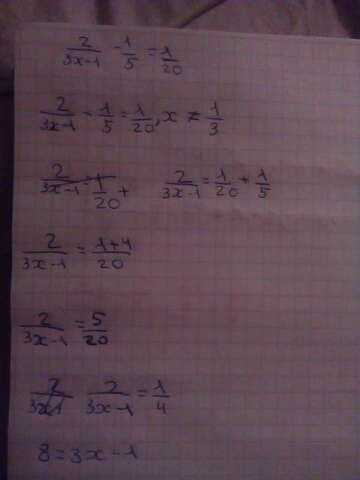 2/(3x-1) - 1/5 = 1/20
2/(3x-1) - 1/5 = 1/20, x ≠ 1/3
2/(3x-1) = 1/20 + 2/(3x-1) = 1/20 + 1/5
2/(3x-1) = (1+4)/20
2/(3x-1) = 5/20
2/(3x-1) 2/(3x-1) = 1/4
8 = 3x - 1